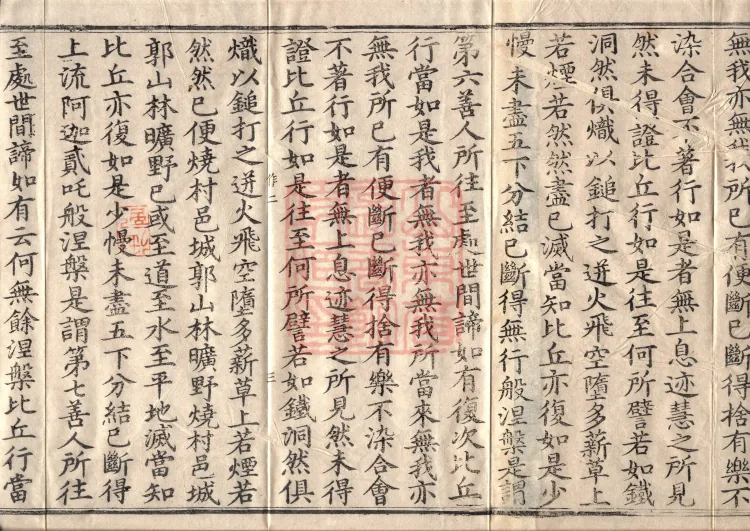 無我亦無我所已有便斷已斷得捨有樂不
染合會不著行如是者無上息迹慧之所見
然未得證比丘行如是往至何所譬若如鐵
洞然俱熾以鎚打之迸火飛空墮多薪草上
若煙若然然盡已滅當知比丘亦復如是少
慢未盡五下分結已斷得無行般涅槃是謂
第六善人所往至處世間諦如有復次比丘
行當如是我者無我亦無我所當來無我亦
無我所已有便斷已斷得捨有樂不染合會
不著行如是者無上息迹慧之所見然未得
證比丘行如是往至何所譬若如鐵洞然俱
作二 三
熾以鎚打之迸火飛空墮多薪草上若煙若
然然已便燒村邑城郭山林曠野燒村邑城
郭山林曠野已或至道至水至平地滅當知
比丘亦復如是少慢未盡五下分結已斷得
上流阿迦貳吒般涅槃是謂第七善人所往
至處世間諦如有云何無餘涅槃比丘行當